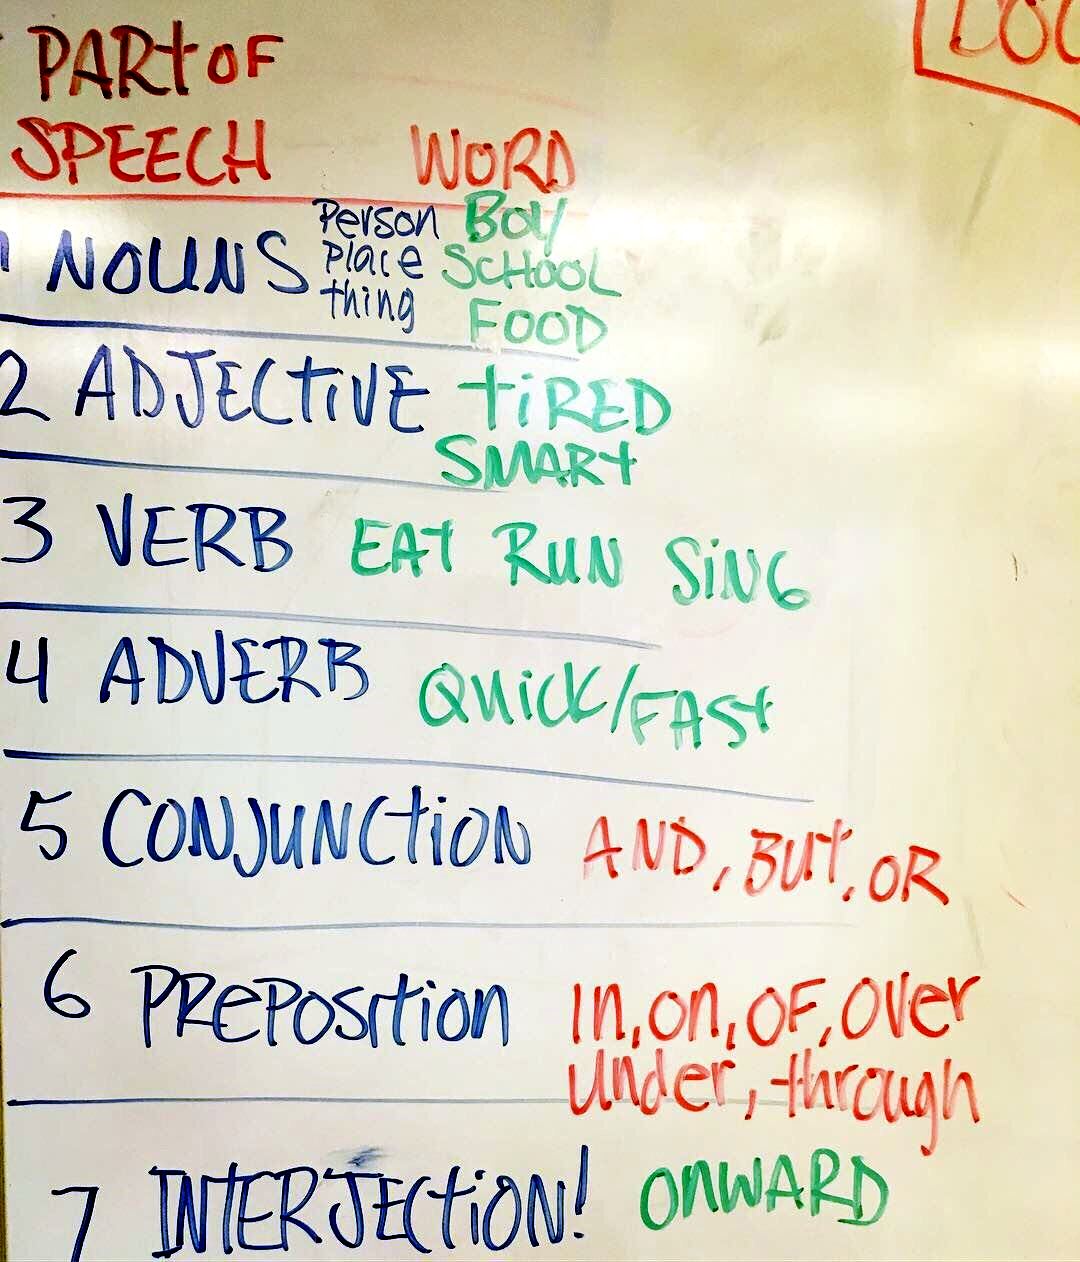 PARt OF
SPEECH WORD
1 NOUNS Person BOY
Place SCHOOL
thing FOOD
2 ADJECtiVE tiRED
SMARt
3 VERB EAt RUN SiNG
4 ADVERB QuicK/FASt
5 CONJUNCtiON AND, BUt, OR
6 PRePOsition In, on, OF, Over
under, through
7 INTERJECtiON! ONWARD